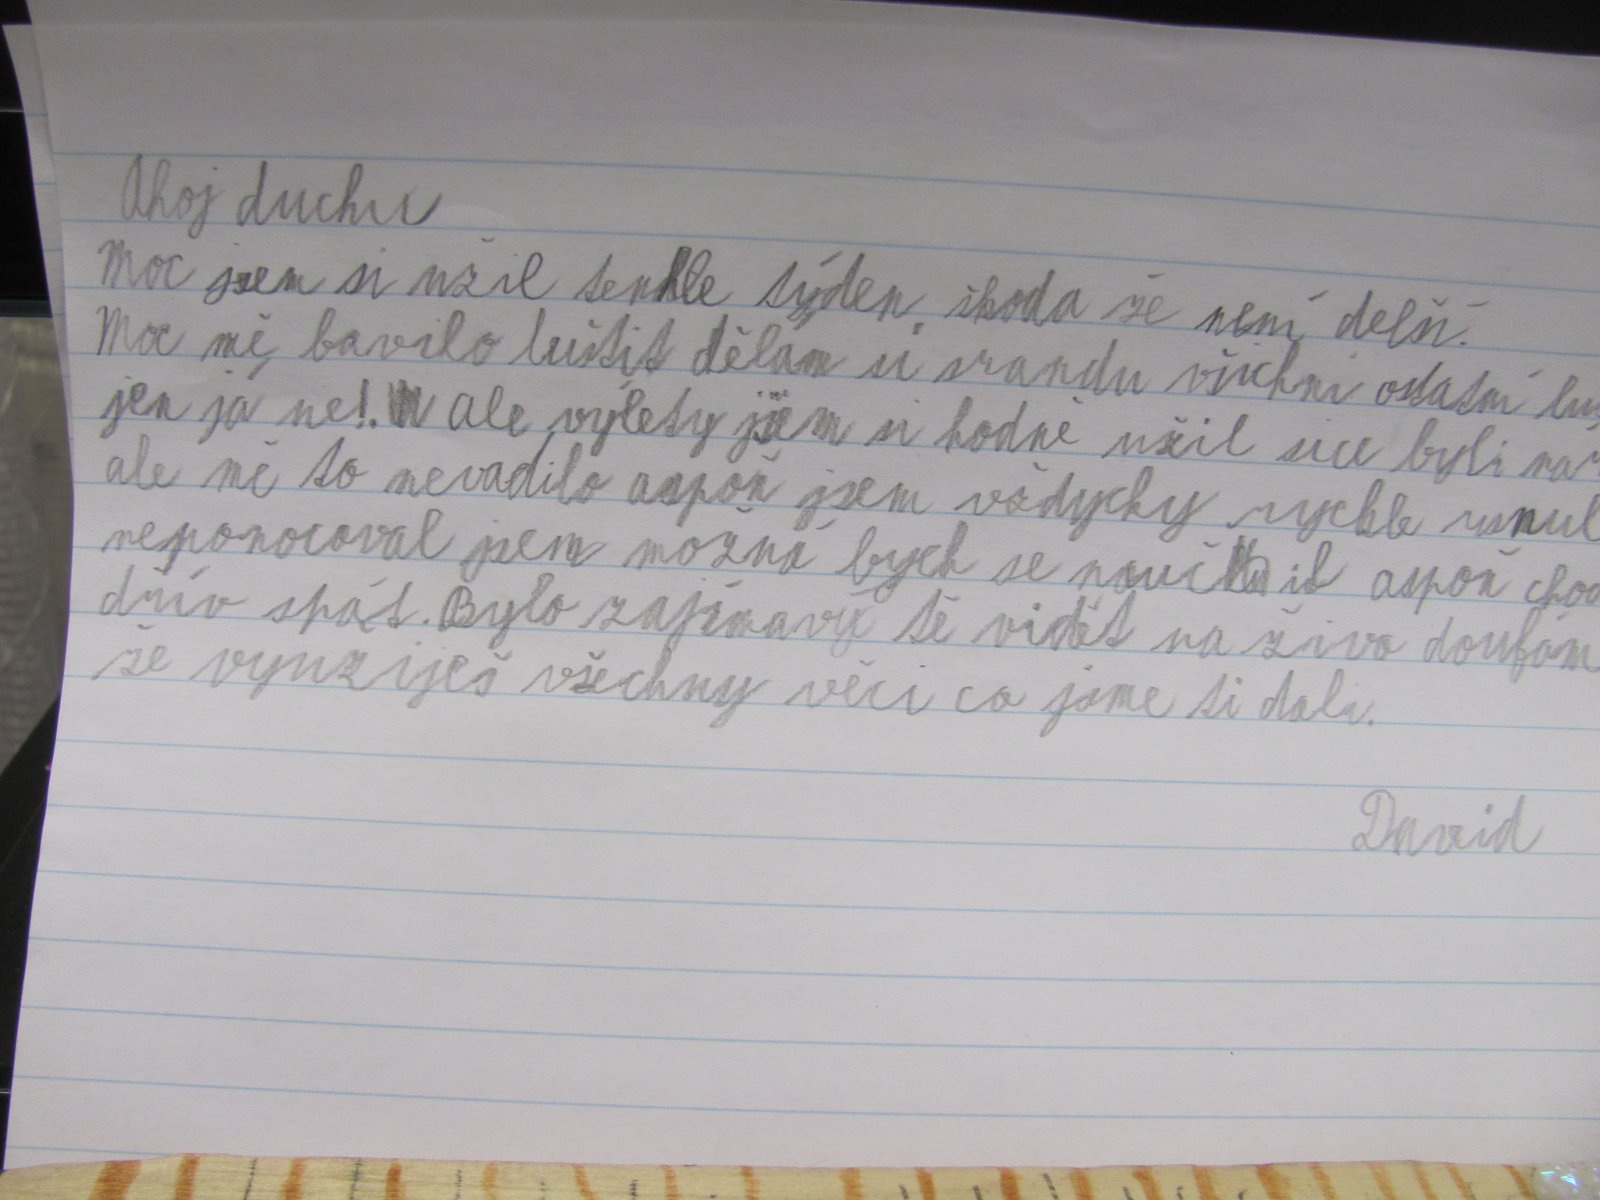 Ahoj duchu
Moc jsem si užil tenhle týden, škoda že není delší.
Moc mě bavilo luštit dělám si srandu všichni ostatní
jen já ne!. ale výlety jsem si hodně užil sice byli
ale mě to nevadilo aspoň jsem vždycky rychle usnul
neponocoval jsem možná bych se naučil aspoň
dřív spát. Bylo zajímavý tě vidět na živo doufám
že vyuziješ všechny věci co jsme ti dali.
David